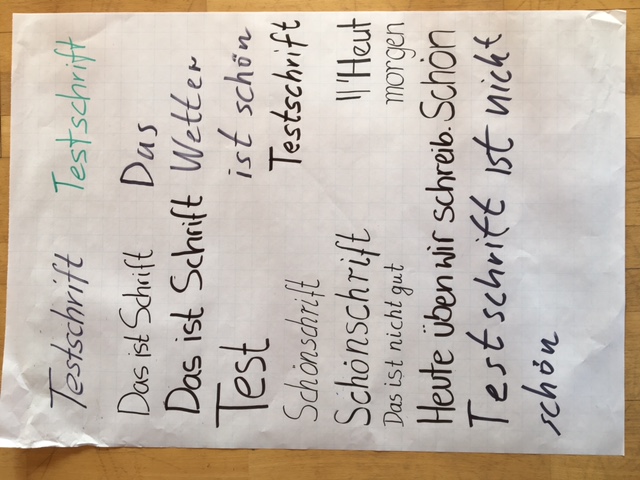 Testschrift Testschrift
Das ist Schrift Das
Das ist Schrift Wetter
Test ist schön
Testschrift
Schönschrift
Schönschrift Heut
Das ist nicht gut morgen
Heute üben wir schreib. Schön
Testschrift ist nicht
schön